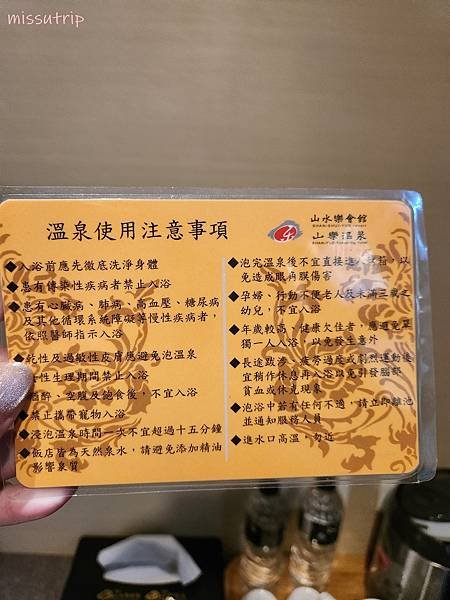 missutrip
溫泉使用注意事項
山水樂會館
山樂溫泉
◆入浴前應先徹底洗淨身體
◆患有傳染性疾病者禁止入浴
◆患有心臟病、肺病、高血壓、糖尿病
及其他循環系統障礙等慢性疾病者,
依照醫師指示入浴
◆乾性及過敏性皮膚應避免泡溫泉
性生理期間禁止入浴
酒醉、空腹及飽食後,不宜入浴
◆禁止攜帶寵物入浴
◆浸泡溫泉時間一次不宜超過十五分鐘
◆飯店皆為天然泉水,請避免添加精油
影響泉質
◆泡完溫泉後不宜直接進,以
免造成眼角膜傷害
◆孕婦、行動不便老人及未滿三歲之
幼兒,不宜入浴
◆年歲較高、健康欠佳者,應避免單
獨一人入浴,以免發生意外
◆長途跋涉、疲勞過度或劇烈運動後
宜稍作休息再入浴以免引發腦部
貧血或休克現象
◆泡浴中若有任何不適,請立即離池
並通知服務人員
◆進水口高溫,勿近